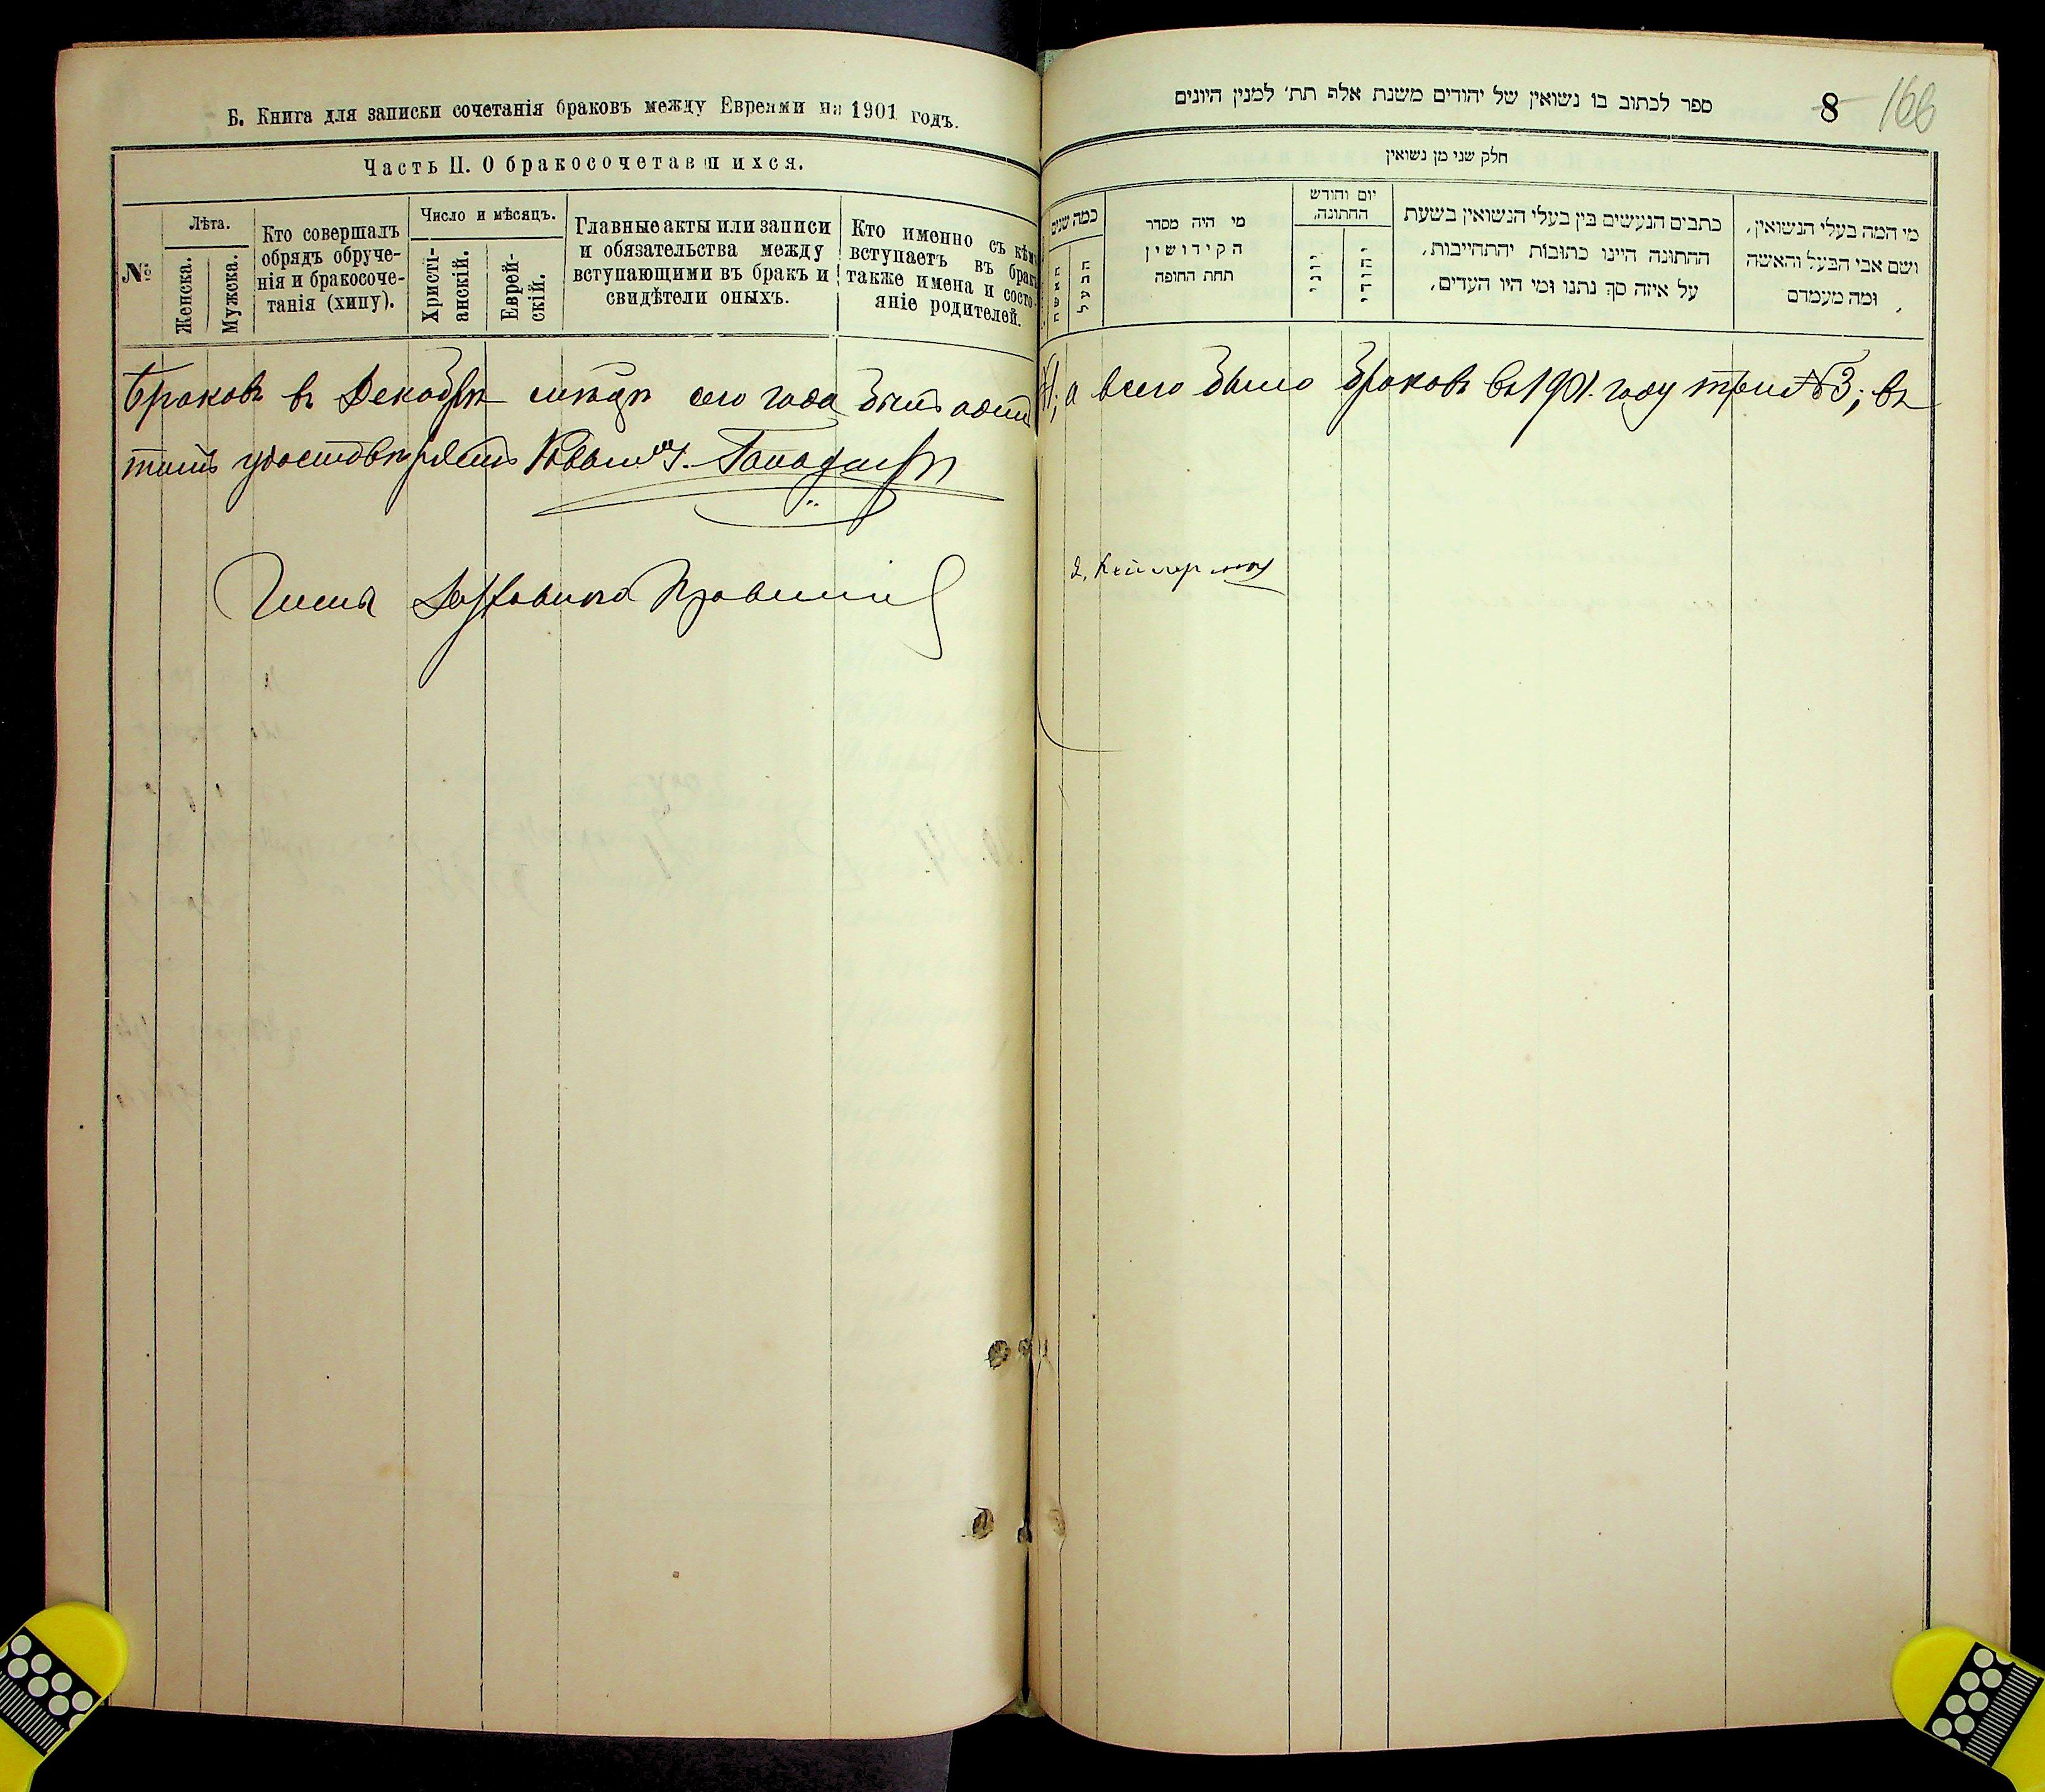 Б. Книга для записки сочетанія браковъ между Евреями на 1901 годъ.
Часть II. О бракосочетавшихся.
№
Лѣта.
Женска.
Мужска.
Кто совершалъ
обрядъ обруче-
нія и бракосоче-
танія (хипу).
Число и мѣсяцъ.
Христі-
анскій.
Еврей-
скій.
Главные акты или записи
и обязательства между
вступающими въ бракъ и
свидѣтели оныхъ.
Кто именно съ кѣмъ
вступаетъ въ бракъ
также имена и состо-
яніе родителей.
Браковъ въ Декабрѣ мѣсяцѣ сего года былъ одинъ
томъ удостовѣряетъ
Члена Духовнаго Правленія
ספר לכתוב בו נשואין של יהודים משנת אלף תת׳ למנין היונים
8 166
חלק שני מן נשואין
מי המה בעלי הנשואין,
ושם אבי הבעל והאשה
ומה מעמדם
כתבים הנעשים בין בעלי הנשואין בשעת
ההתונה היינו כתובות יהתחייבות,
על איזה סך נתנו ומי היו העדים,
יום וחודש
ההתונה,
יהודי
יוני
מי היה מסדר
הקידושין
תחת החופה
כמה שנים
הבעל
האשה
№1; а всего было браковъ въ 1901. году три №3; въ